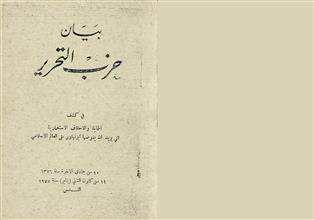 بيان
حزب التحرير
في كشف
الخيانة والاحلاف الاستعمارية
التي يريد ان يفرضها ايزنهاور على العالم الاسلامي
١٠ من جمادى الآخرة سنة ١٣٧٦
١١ من كانون الثاني (يناير) سنة ١٩٥٧